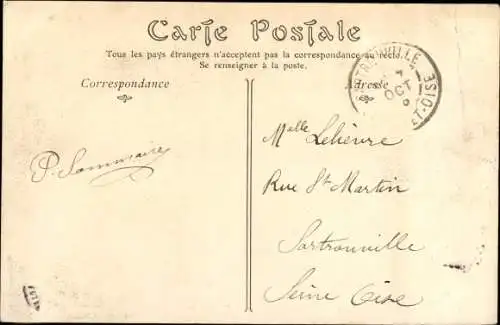 Carte Postale
Tous les pays étrangers n'acceptent pas la correspondance au recto.
Se renseigner à la poste.
Correspondance
Adresse
SARTROUVILLE
OCT
ET-OISE
P. Sommaire
Melle Lelièvre
Rue St Martin
Sartrouville
Seine Oise